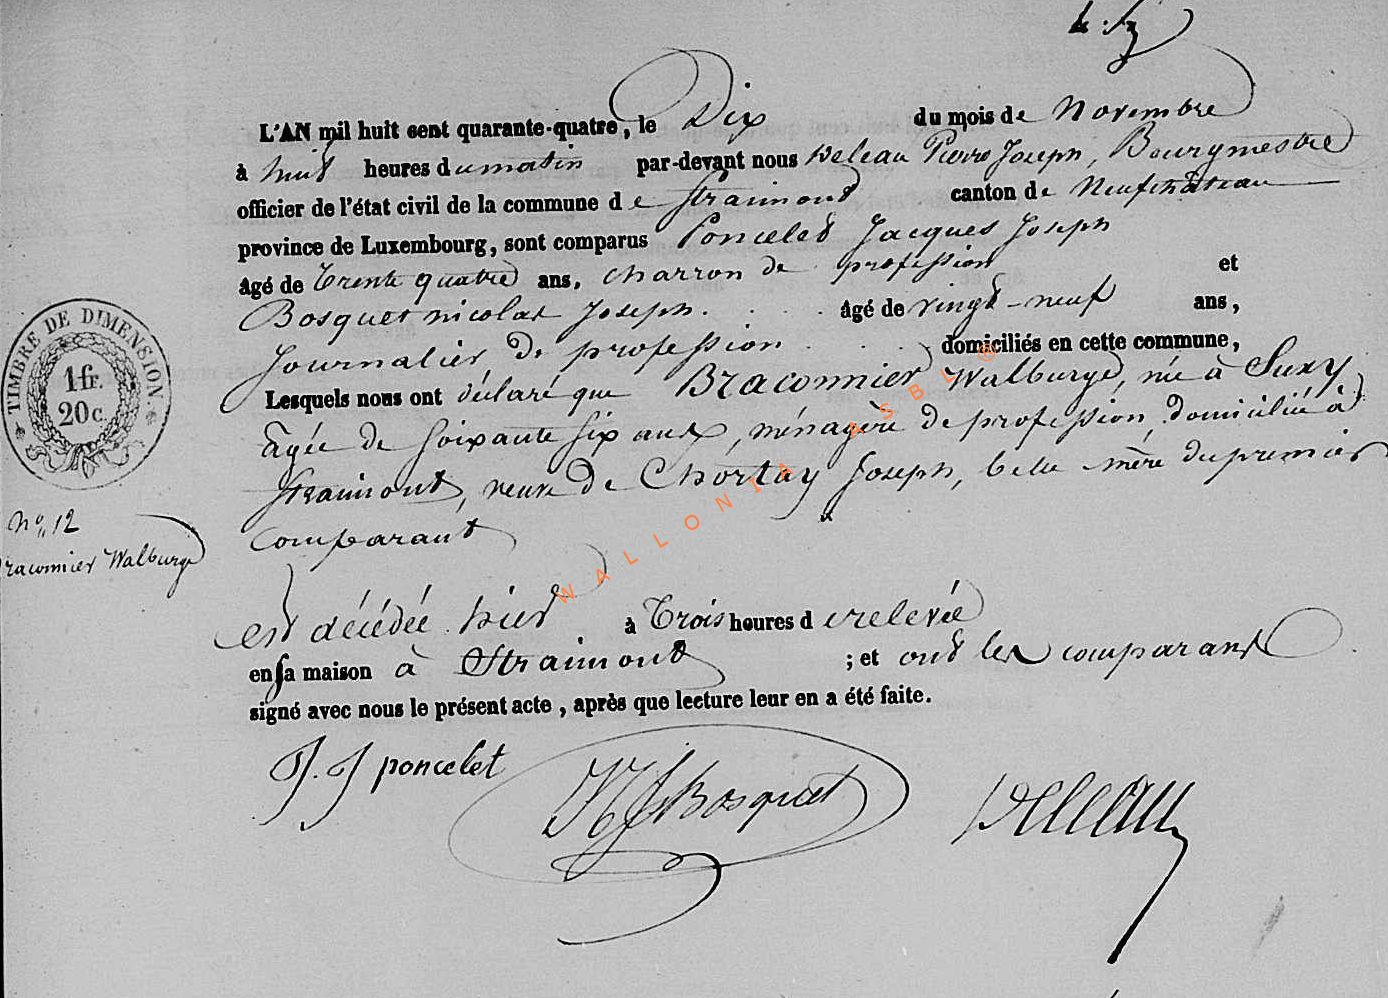 L'AN mil huit cent quarante-quatre, le Dix du mois de Novembre
à huit heures du matin par-devant nous Deleau Pierre Joseph, Bourgmestre
officier de l'état civil de la commune de Straimont canton de Neufchâteau
province de Luxembourg, sont comparus Poncelet Jacques Joseph
âgé de Trente quatre ans, charron de profession et
Bosquet nicolas Joseph. âgé de vingt-neuf ans,
Journalier de profession domiciliés en cette commune,
Lesquels nous ont déclaré que Braconnier Walburge, née à Suxy
âgée de soixante six ans, ménagère de profession, domiciliée à
Straimont, veuve de Chortay Joseph, belle mère du premier
comparant
est décédée hier à Trois heures de relevée
en sa maison à Straimont ; et ont les comparans
signé avec nous le présent acte, après que lecture leur en a été faite.
J. J poncelet NJ Bosquet Deleau
TIMBRE DE DIMENSION
1 fr.
20 c.
No. 12
Braconnier Walburge
WALLONIA ASBL ®